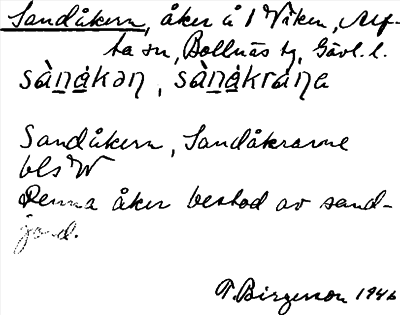 Sandåkern, åker å 1 Viken, Alf-
ta sn, Bollnäs tg, Gävl. l.
sànạ̊kǝn, sànạ̊krạna
Sandåkern, Sandåkrarne
bls W
Denna åker bestod av sand-
jord.
T. Birgerson 1946